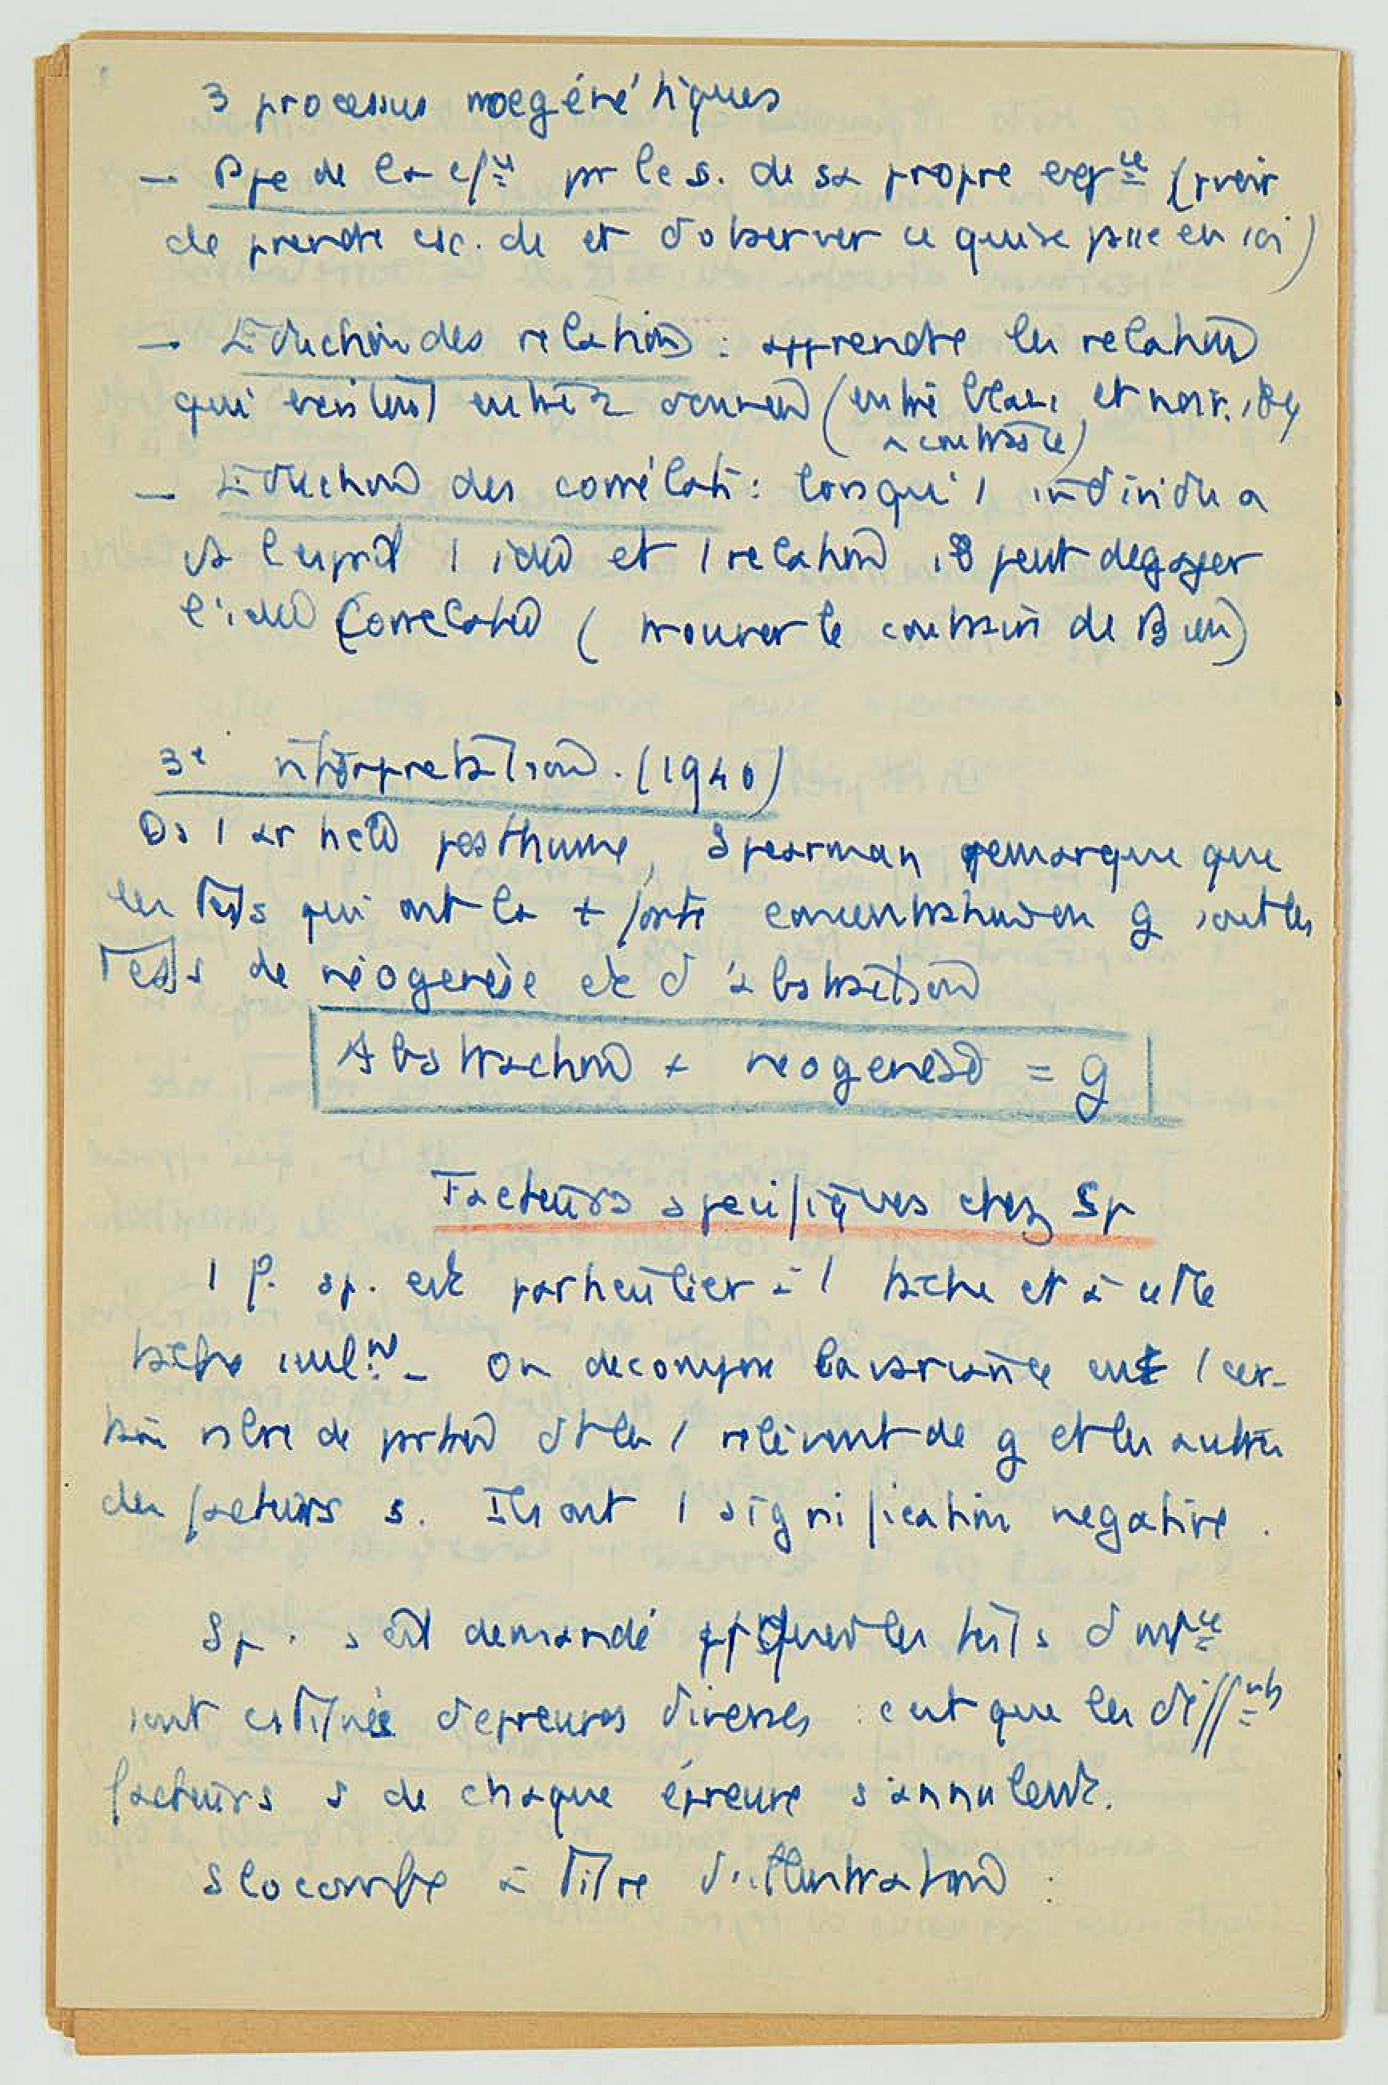 3 processus noegénétiques
— Ppe de la c/ce pr le s. de sa propre expce (pvoir
de prendre csc. de et d'observer ce qui se passe en soi)
— Eduction des relations : apprendre les relations
qui existent entre 2 données (entre blanc et noir, il y
a contraste)
— Eduction des corrélats : lorsqu'1 individu a
ds l'esprit 1 idée et 1 relation, il peut degager
l'idée correlative (trouver le contraire de Bien)
3e interpretation. (1940)
Ds 1 article posthume, Spearman remarque que
les tests qui ont la + forte concentration en g sont les
tests de néogenèse et d'abstraction
Abstraction + neogenèse = g
Facteurs specifiques chez Sp
1 f. sp. est particulier à 1 tâche et à cette
tâche seulnt. On decompose la variance en 1 cer-
tain nbre de parties dt les 1 relèvent de g et les autres
des facteurs s. Ils ont 1 signification negative.
Sp. s'est demandé pquoi les tests d'intce
sont cstitués d'epreuves diverses : c'est que les difffnts
facteurs s de chaque épreuve s'annulent.
Slocombe à titre d'illustration :